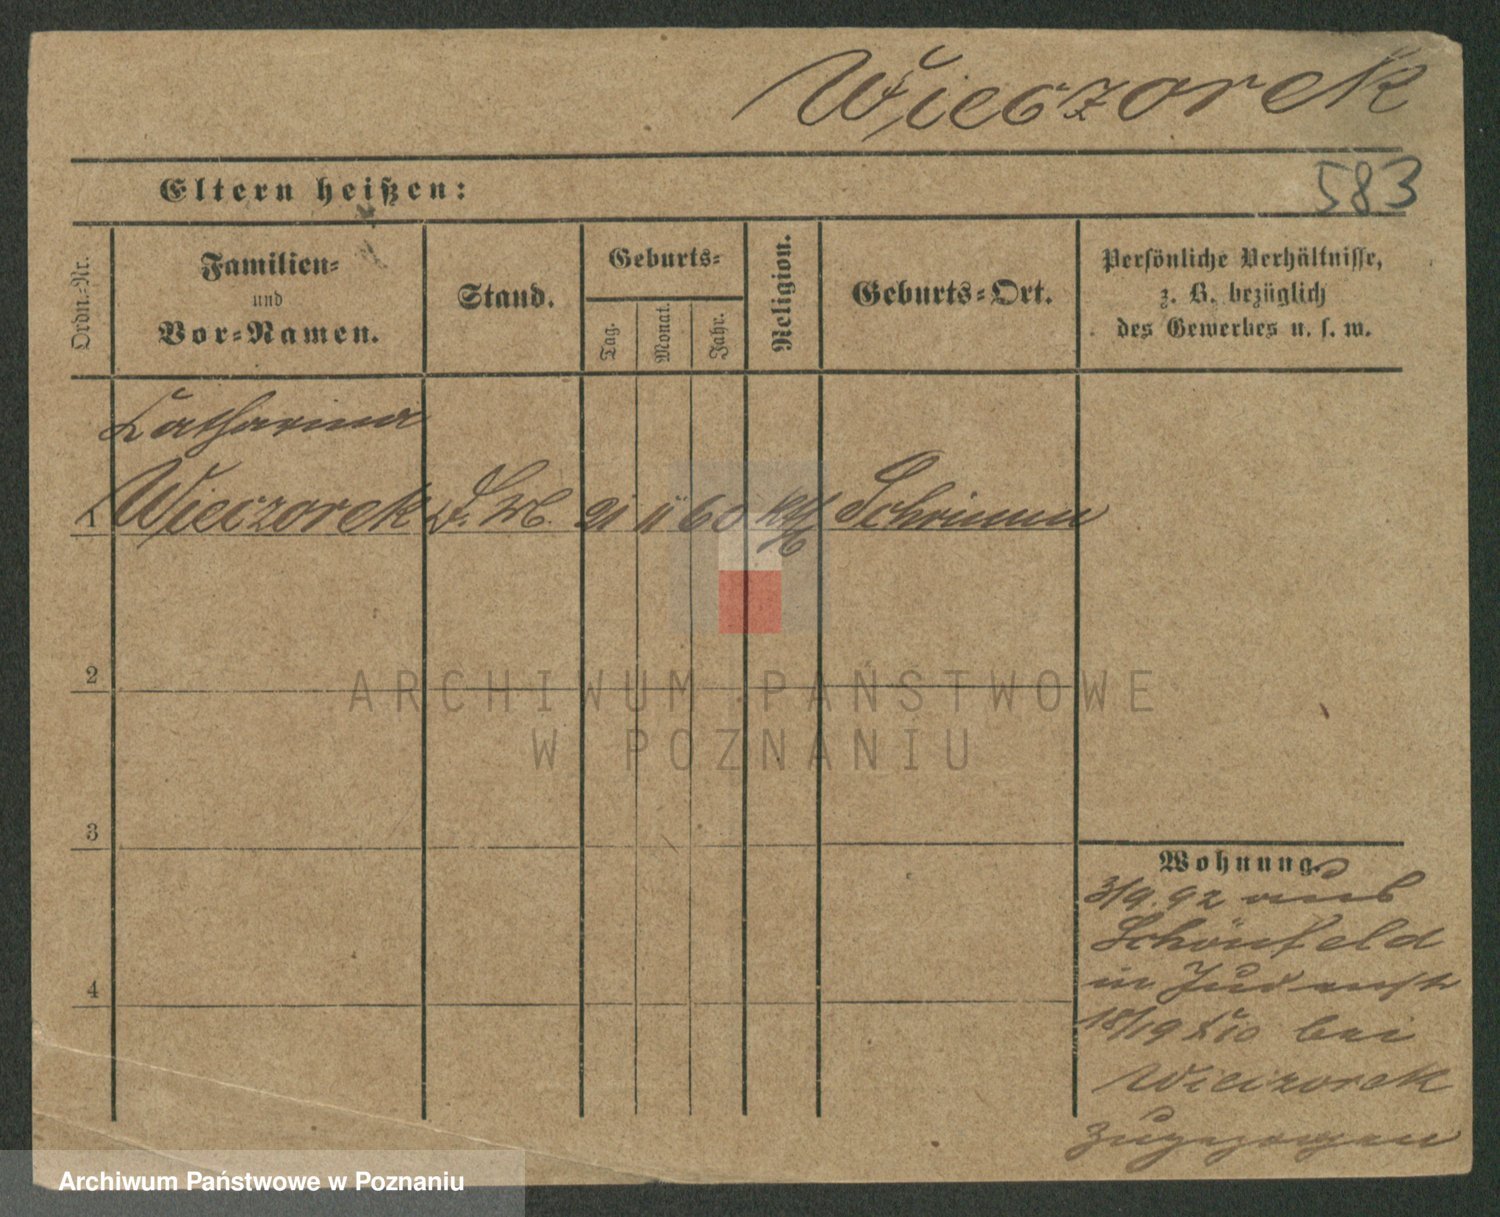 Wieczorek
583
Eltern heißen:
Ordn.-Nr.
Familien-
und
Vor-Namen.
Stand.
Geburts-
Tag.
Monat.
Jahr.
Religion.
Geburts-Ort.
Persönliche Verhältnisse,
z. B. bezüglich
des Gewerbes u. s. w.
Catharina
1 Wieczorek D. M. 21 11 60 kth Schrimm
2
3
4
Wohnung.
3/9. 92 aus
Schönfeld
in
18/19 bei
Wieczorek
zugezogen
ARCHIWUM PAŃSTWOWE
W POZNANIU
Archiwum Państwowe w Poznaniu